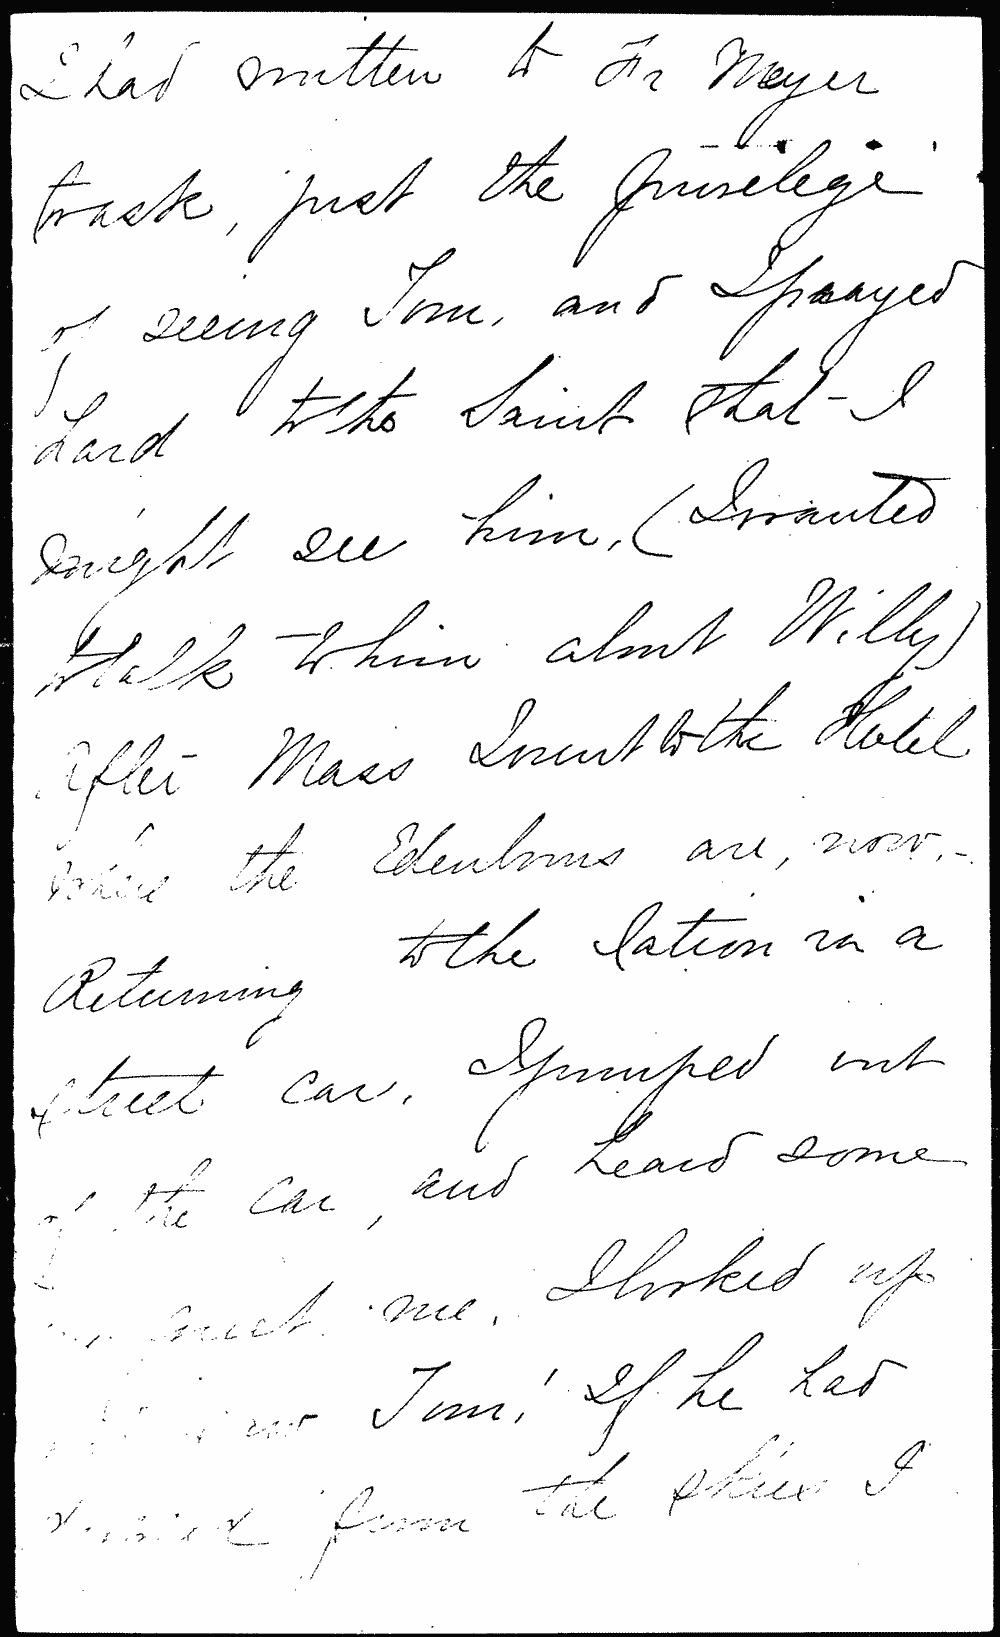 I had written to Fr Meyer
to ask, just the privilege
of seeing Tom, and I prayed
hard to the Saint that I
might see him, (I wanted
to talk to him about Willy)
After Mass I went to the Hotel
where the Edenborns are, now.-
Returning to the Station in a
street car. I jumped out
of the car, and heard some
one greet me. I looked up
and saw Tom! If he had
dropped from the skies I